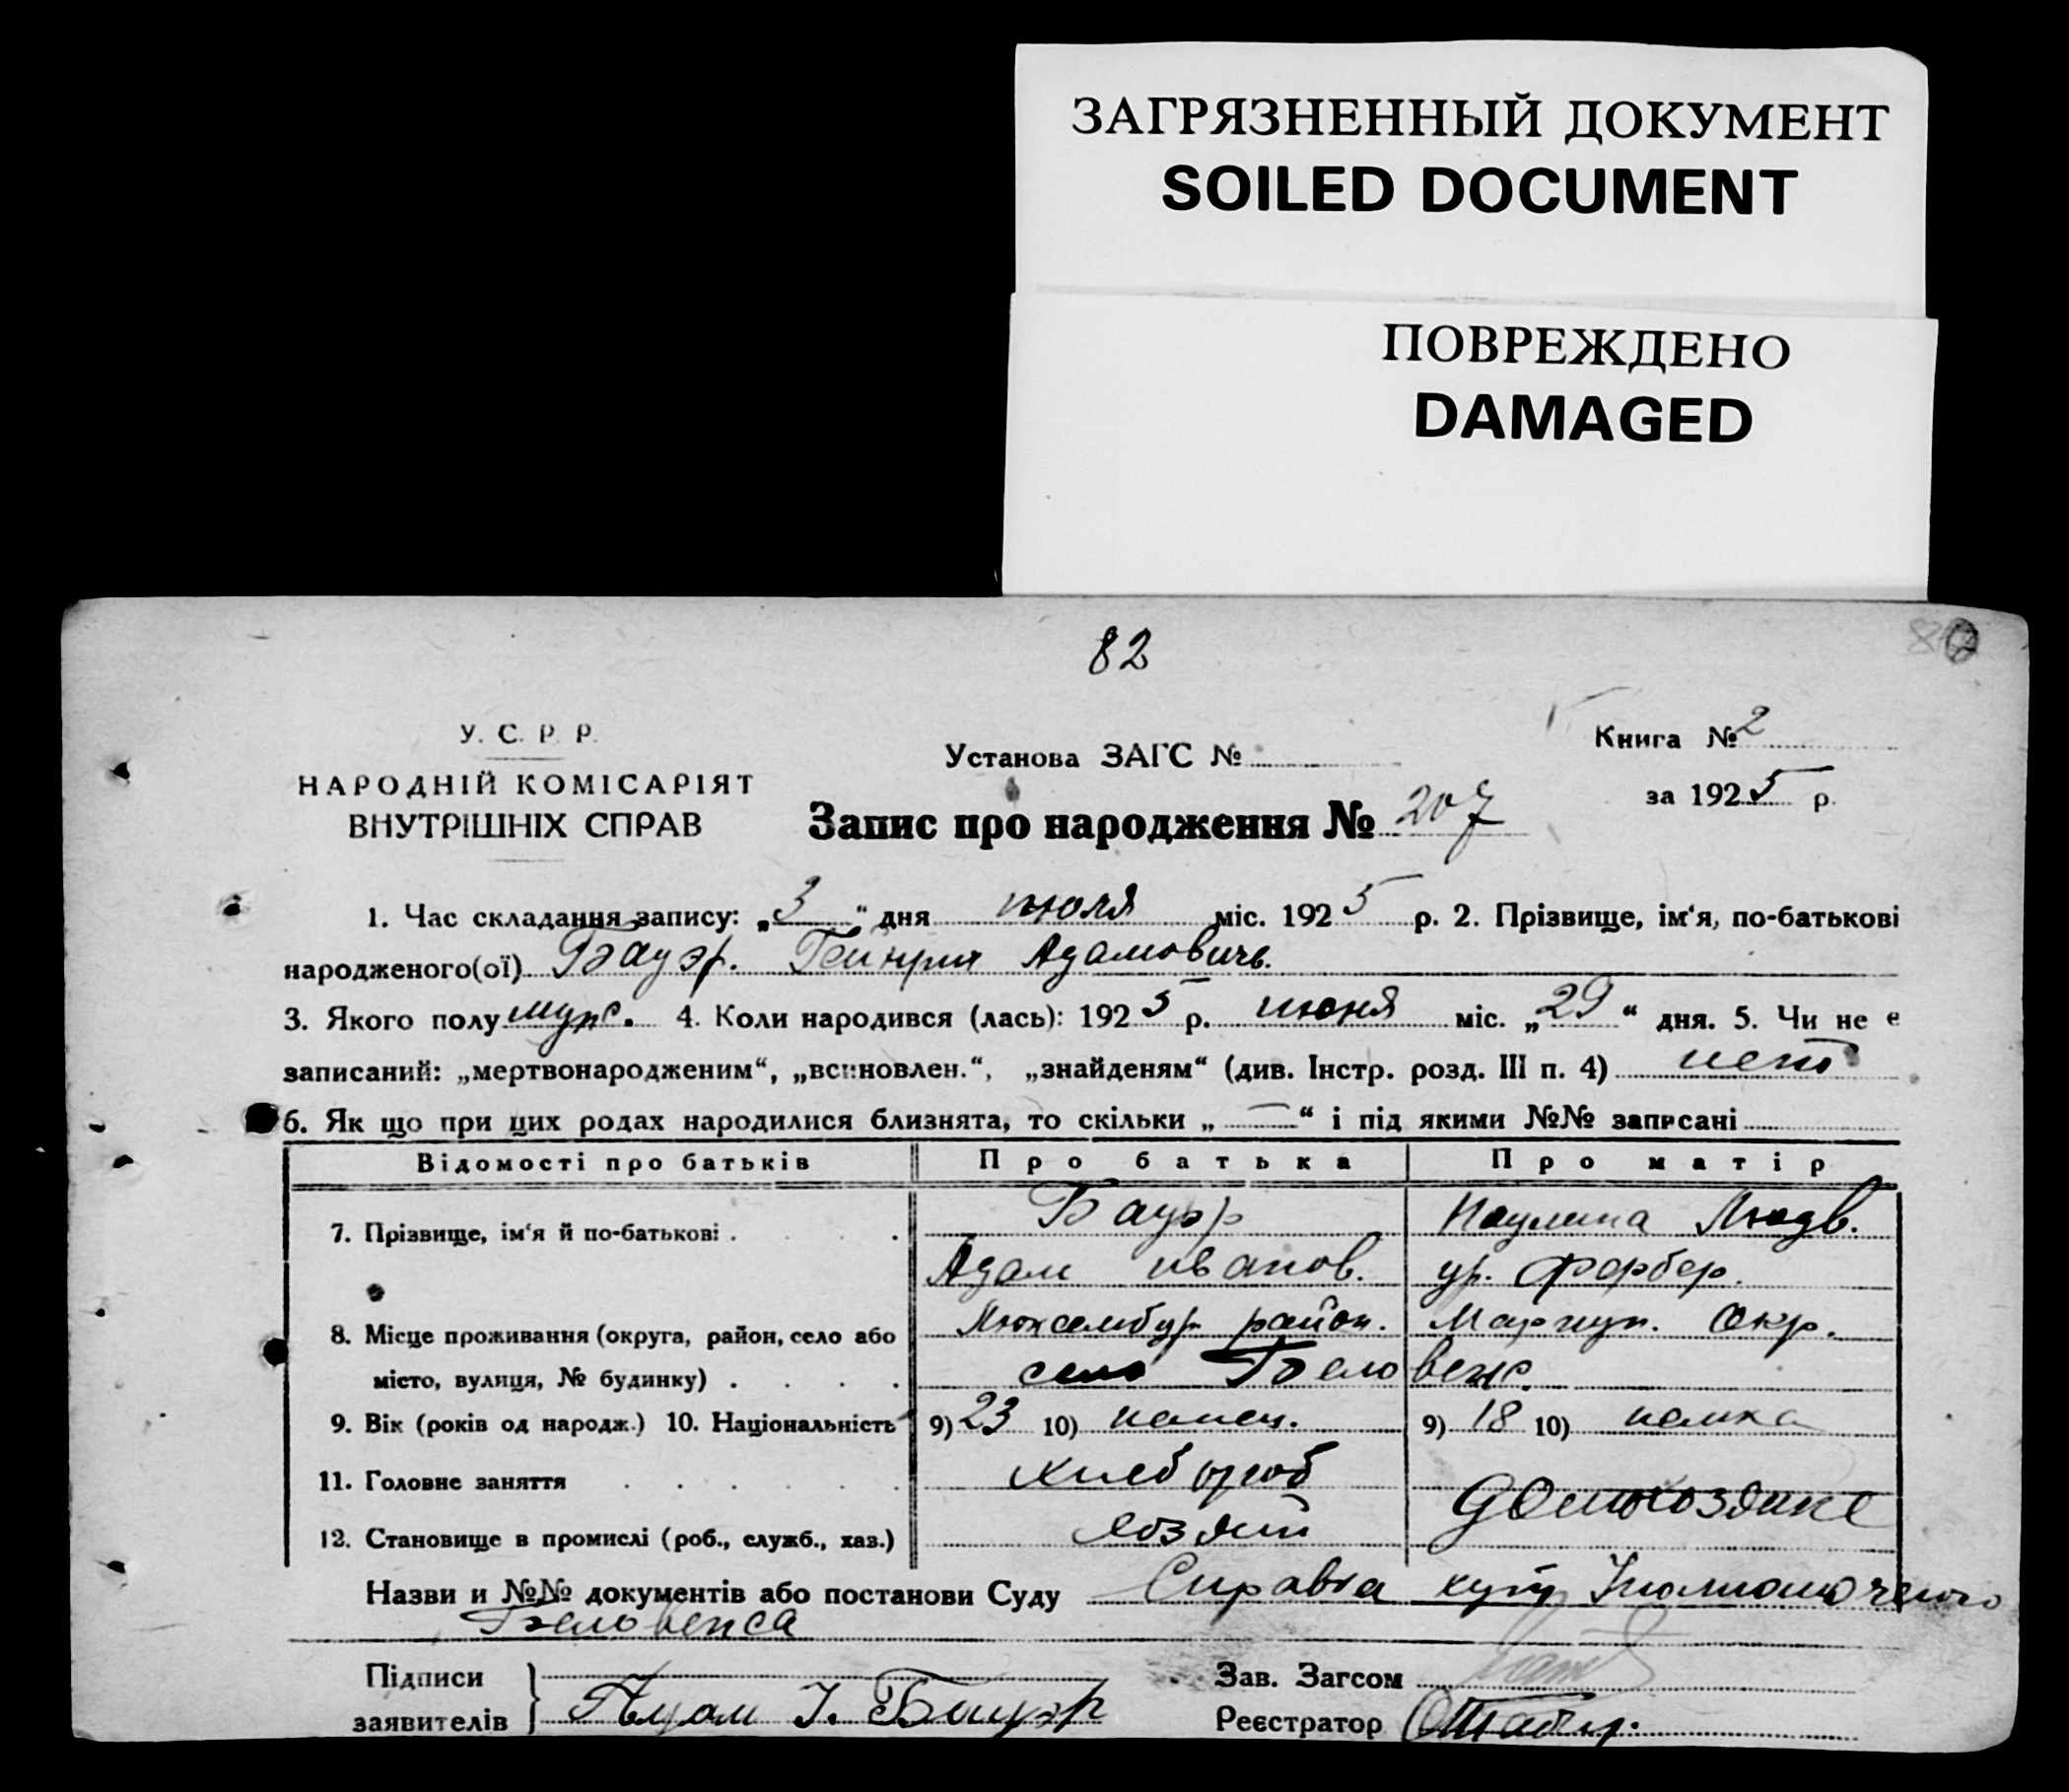 ЗАГРЯЗНЕННЫЙ ДОКУМЕНТ
SOILED DOCUMENT
ПОВРЕЖДЕНО
DAMAGED
82
У. С. Р. Р.
НАРОДНІЙ КОМІСАРІЯТ
ВНУТРІШНІХ СПРАВ
Установа ЗАГС №
Книга № 2
за 1925 р.
Запис про народження № 207
1. Час складання запису: „3“ дня июля міс. 1925 р. 2. Прізвище, ім‘я, по-батькові
народженого(ої) Бауэр. Гейнрих Адамовичь.
3. Якого полу мужс. 4. Коли народився (лась): 1925 р. июня міс. „29“ дня. 5. Чи не є
записаний: „мертвонародженим“, „всиновлен.“, „знайденям“ (див. Інстр. розд. III п. 4) нет
6. Як що при цих родах народилися близнята, то скільки „—“ і під якими №№ записані
Відомості про батьків Про батька Про матір
7. Прізвище, ім‘я й по-батькові . Бауэр Паулина Людв.
Адам иванов. ур. Фербер.
8. Місце проживання (округа, район, село або Люксембур. район. Мариуп. окр.
місто, вулиця, № будинку) . село Беловежс.
9. Вік (років од народж.) 10. Національність 9) 23 10) немец. 9) 18 10) немка
11. Головне заняття хлебороб
12. Становище в промислі (роб., служб., хаз.) хозяин
Назви и №№ документів або постанови Суду Справка
Підписи
заявителів Адам І. Бауэр
Зав. Загсом
Реєстратор